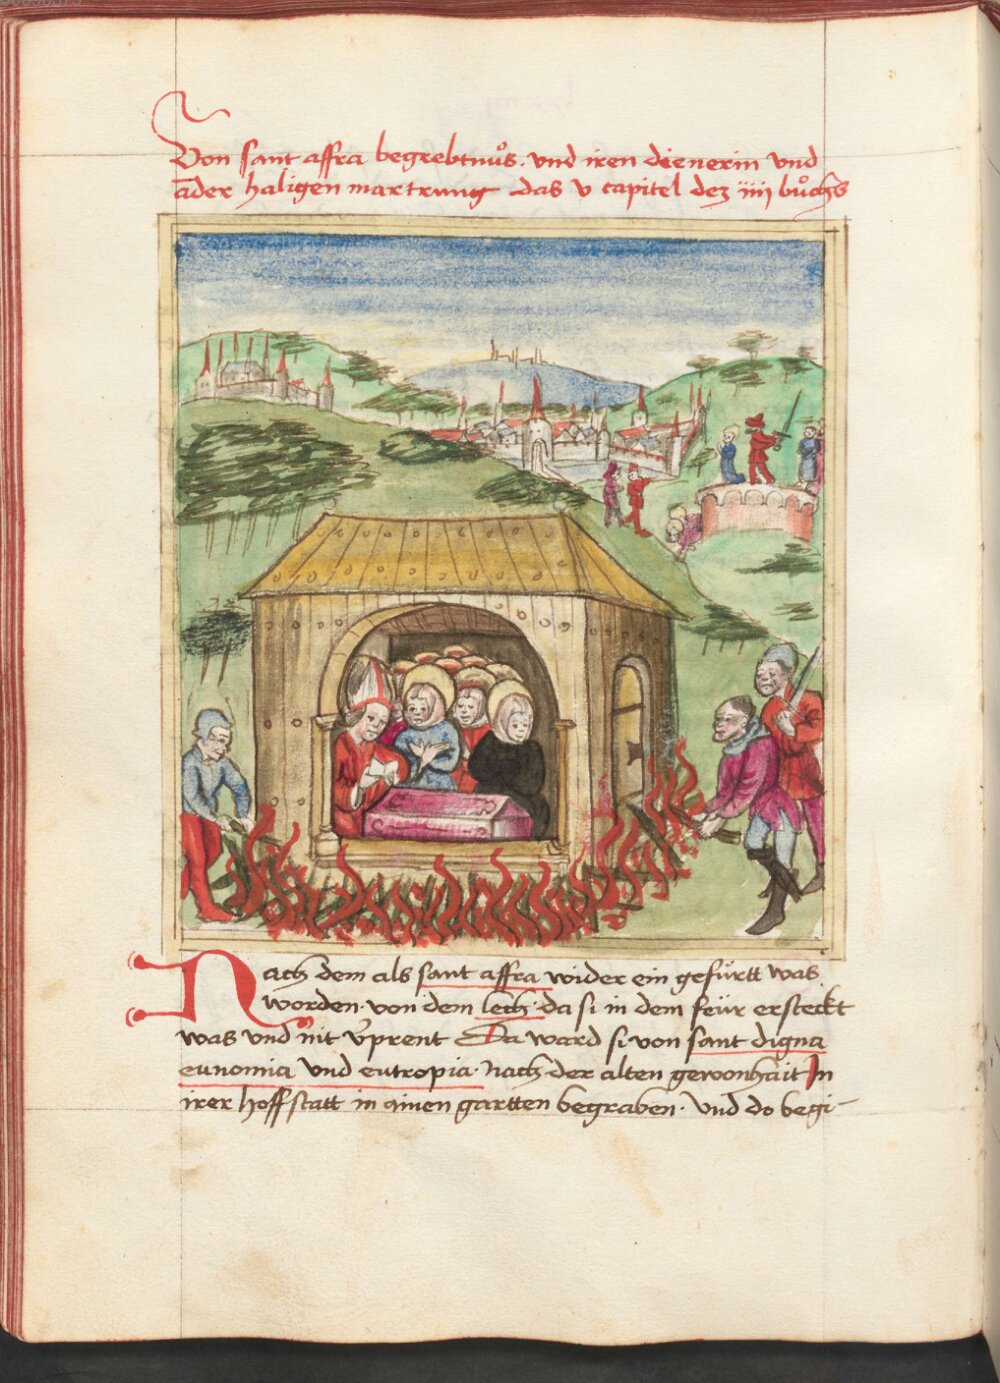 Von sant affra begrebtnůs. vnd iren dienerin vnd
ader haligen martrung das v capitel dez iiij bůchs
Nach dem als sant affra wider ein gefürtt was
worden. von dem lech. da si in dem feür ersteckt
was vnd nit v̉prent Da ward si von sant digna
eunomia vnd eutropia. nach der alten gewonhait In
irer hoffstatt in ainen gartten begraben. vnd do begi-